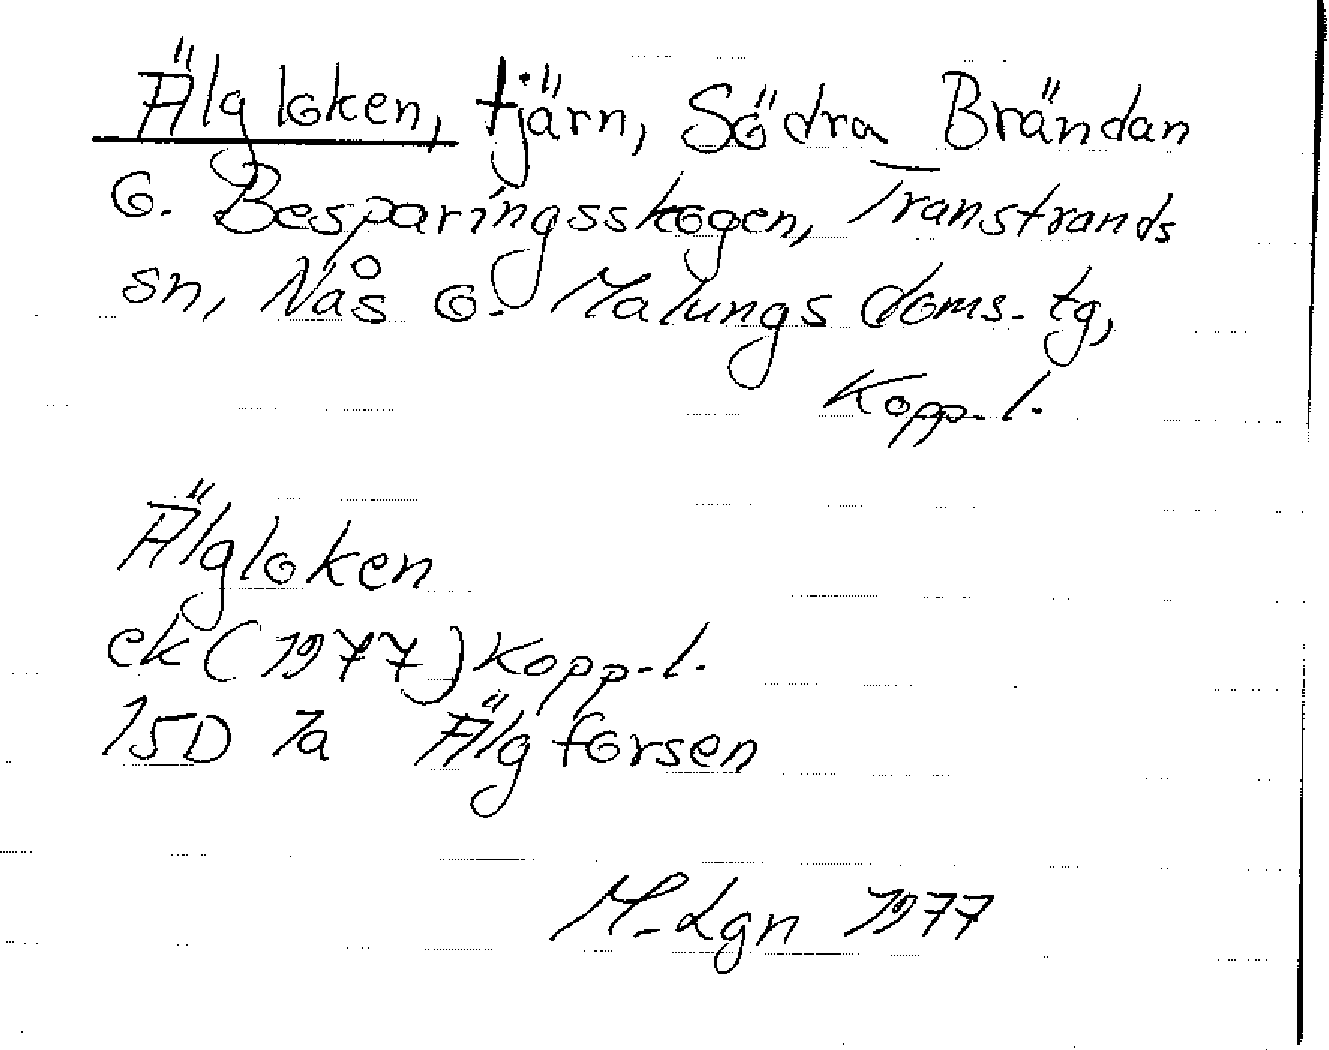 Älgloken, tjärn, Södra Brändan
o. Besparingsskogen, Transtrands
sn, Nås o. Malungs doms.tg,
Kopp.l.
Älgloken
ek (1977) Kopp.l.
15D 7a Älgforsen
M.Lgn 1977